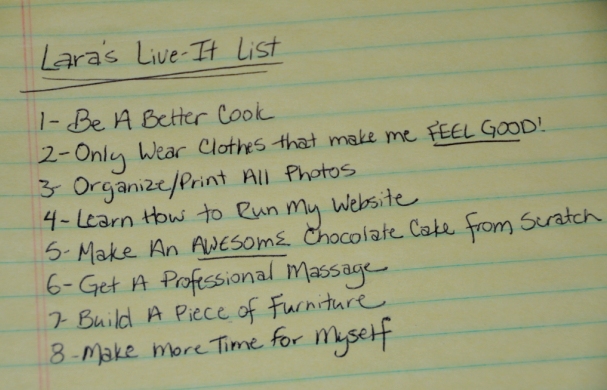 Lara's Live-It List
1- Be A Better Cook
2- Only Wear Clothes that make me FEEL GOOD!
3- Organize/Print All Photos
4- Learn How to Run My Website
5- Make An AWESOME Chocolate Cake from Scratch
6- Get A Professional Massage
7- Build A Piece of Furniture
8- Make More Time for Myself